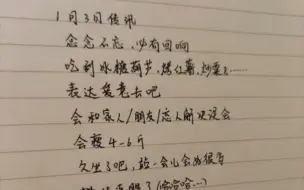 1月3日传讯
念念不忘,必有回响
吃到冰糖葫芦、烤红薯、炒栗子……
表达爱意去吧
会和家人/朋友/恋人解决误会
会瘦4-6斤
久坐了吧,起一会儿会好很多